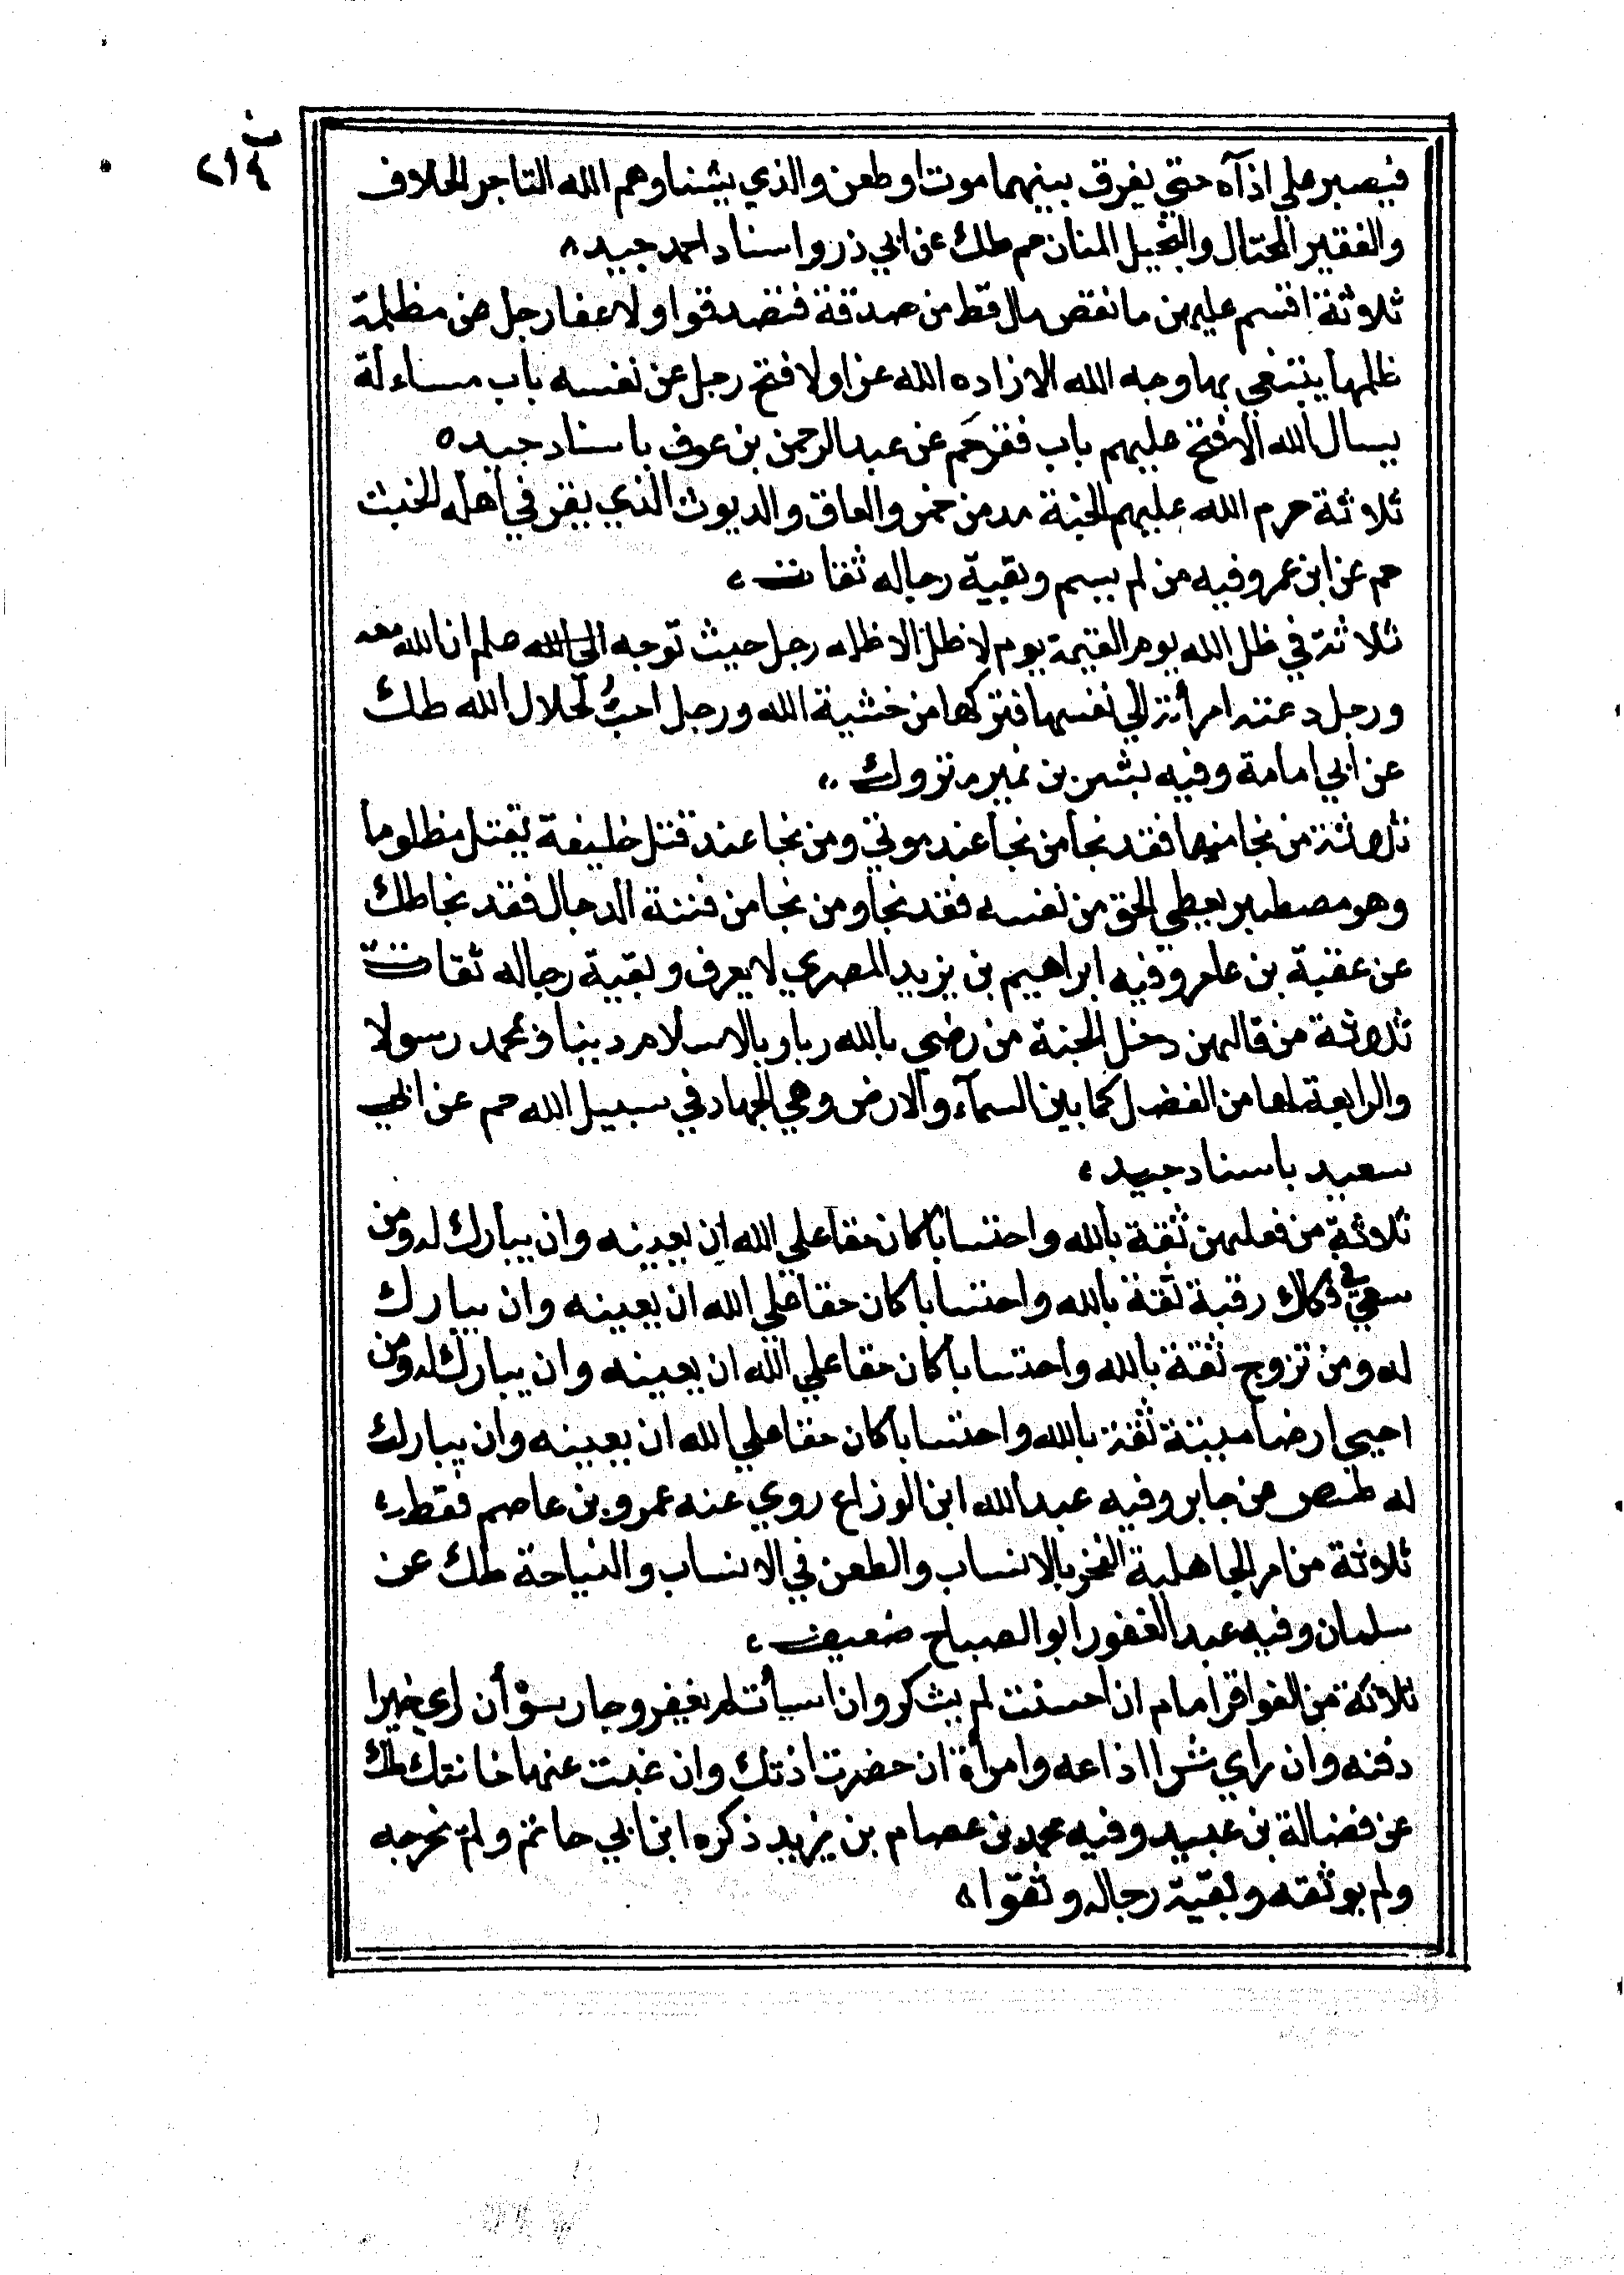 ٢١٤
فيصبر على اذآه حتي يفرق بينهما موت او ظعن والذي يشناوهم الله التاجر الحلاف
والفقير المختال والبخيل المنان حم طك عن ابي ذر واسناد احمد جيد
ثلاثة اقسم عليهن ما نقص مال قط من صدقة فتصدقوا ولا عفا رجل عن مظلمة
ظلمها يبتغي بها وجه الله الا زاده الله عزا ولا فتح رجل عن نفسه باب مساءلة
يسال الله الا فتح عليهم باب فقر حم عن عبد الرحمن بن عوف باسناد جيد
ثلاثة حرم الله عليهم الجنة مدمن خمر والعاق والديوث الذي يقر في اهله الخبث
حم عن ابن عمر وفيه من لم يسم وبقية رجاله ثقات
ثلاثة في ظل الله يوم القيمة يوم لا ظل الا ظله رجل حيث توجه الى الله علم ان الله معه
ورجل دعته امرأة الي نفسها فتركها من خشية الله ورجل احب لجلال الله طك
عن ابي امامة وفيه بشر بن نمير متروك
ثلاثة من نجا منها فقد نجا من نجا عند موتي ومن نجا عند قتل خليفة يقتل مظلوما
وهو مصطبر يعطي الحق من نفسه فقد نجا ومن نجا من فتنة الدجال فقد نجا طك
عن عقبة بن عامر وفيه ابراهيم بن يزيد المصري لا يعرف وبقية رجاله ثقات
ثلاثة من قالهن دخل الجنة من رضي بالله ربا وبالاسلام دينا وبمحمد رسولا
والرابعة لها من الفضل كما بين السمآء والارض وهي الجهاد في سبيل الله حم عن ابي
سعيد باسناد جيد
ثلاثة من فعلهن ثقة بالله واحتسابا كان حقا علي الله ان يعينه وان يبارك له ومن
سعي في فكاك رقبة ثقة بالله واحتسابا كان حقا علي الله ان يعينه وان يبارك
له ومن تزوج ثقة بالله واحتسابا كان حقا علي الله ان يعينه وان يبارك له ومن
احيي ارضا ميتة ثقة بالله واحتسابا كان حقا علي الله ان يعينه وان يبارك
له طس عن جابر وفيه عبد الله ابن الوزاع روي عنه عمرو بن عاصم فقط
ثلاثة من امر الجاهلية الفخر بالانساب والطعن في الانساب والنياحة طك عن
سلمان وفيه عبد الغفور ابو الصباح ضعيف
ثلاثة من الفواقر امام ان احسنت لم يشكر وان اسأت لم يغفر وجار سؤ أن راي خيرا
دفنه وان راي شرا اذاعه وامرأة ان حضرت اذتك وان غبت عنها خانتك طك
عن فضالة بن عبيد وفيه محمد بن عصام بن يزيد ذكره ابن ابي حاتم ولم يخرجه
ولم يوثقه وبقية رجاله وثقوا